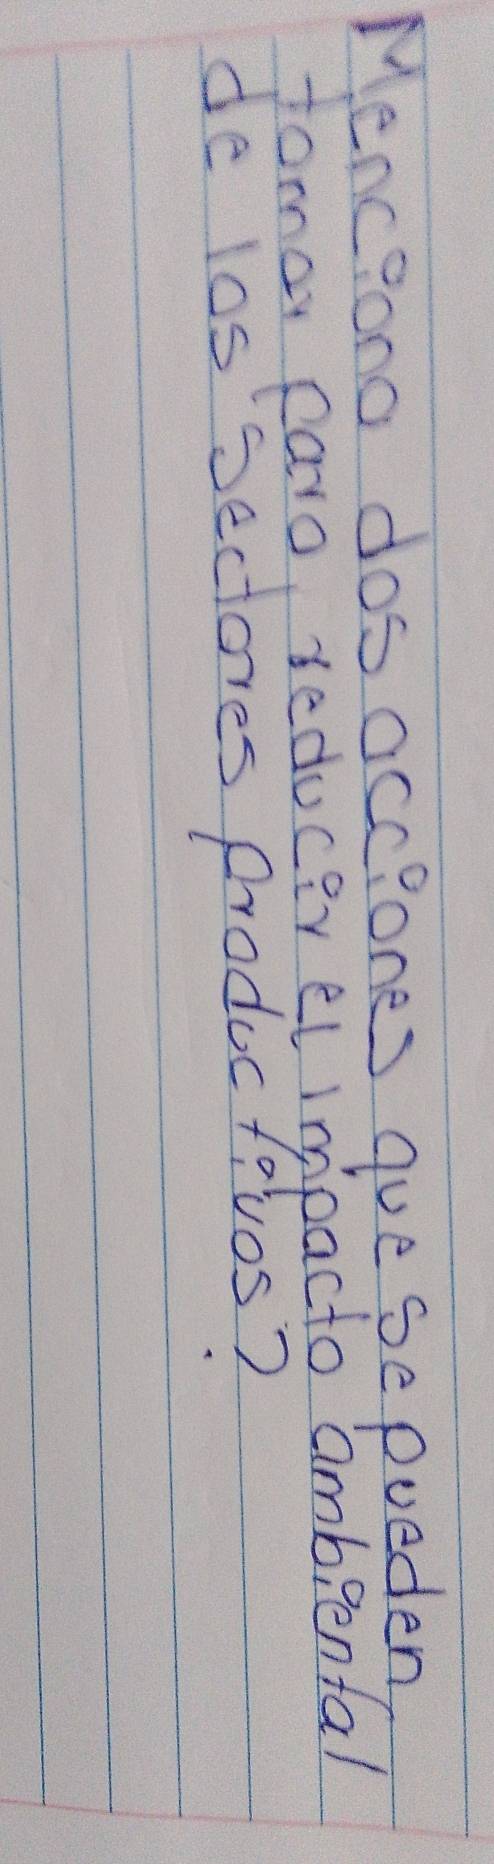 Menciona dos acciones que se pueden
tomar para reducir el impacto ambiental
de los sectores productivos?